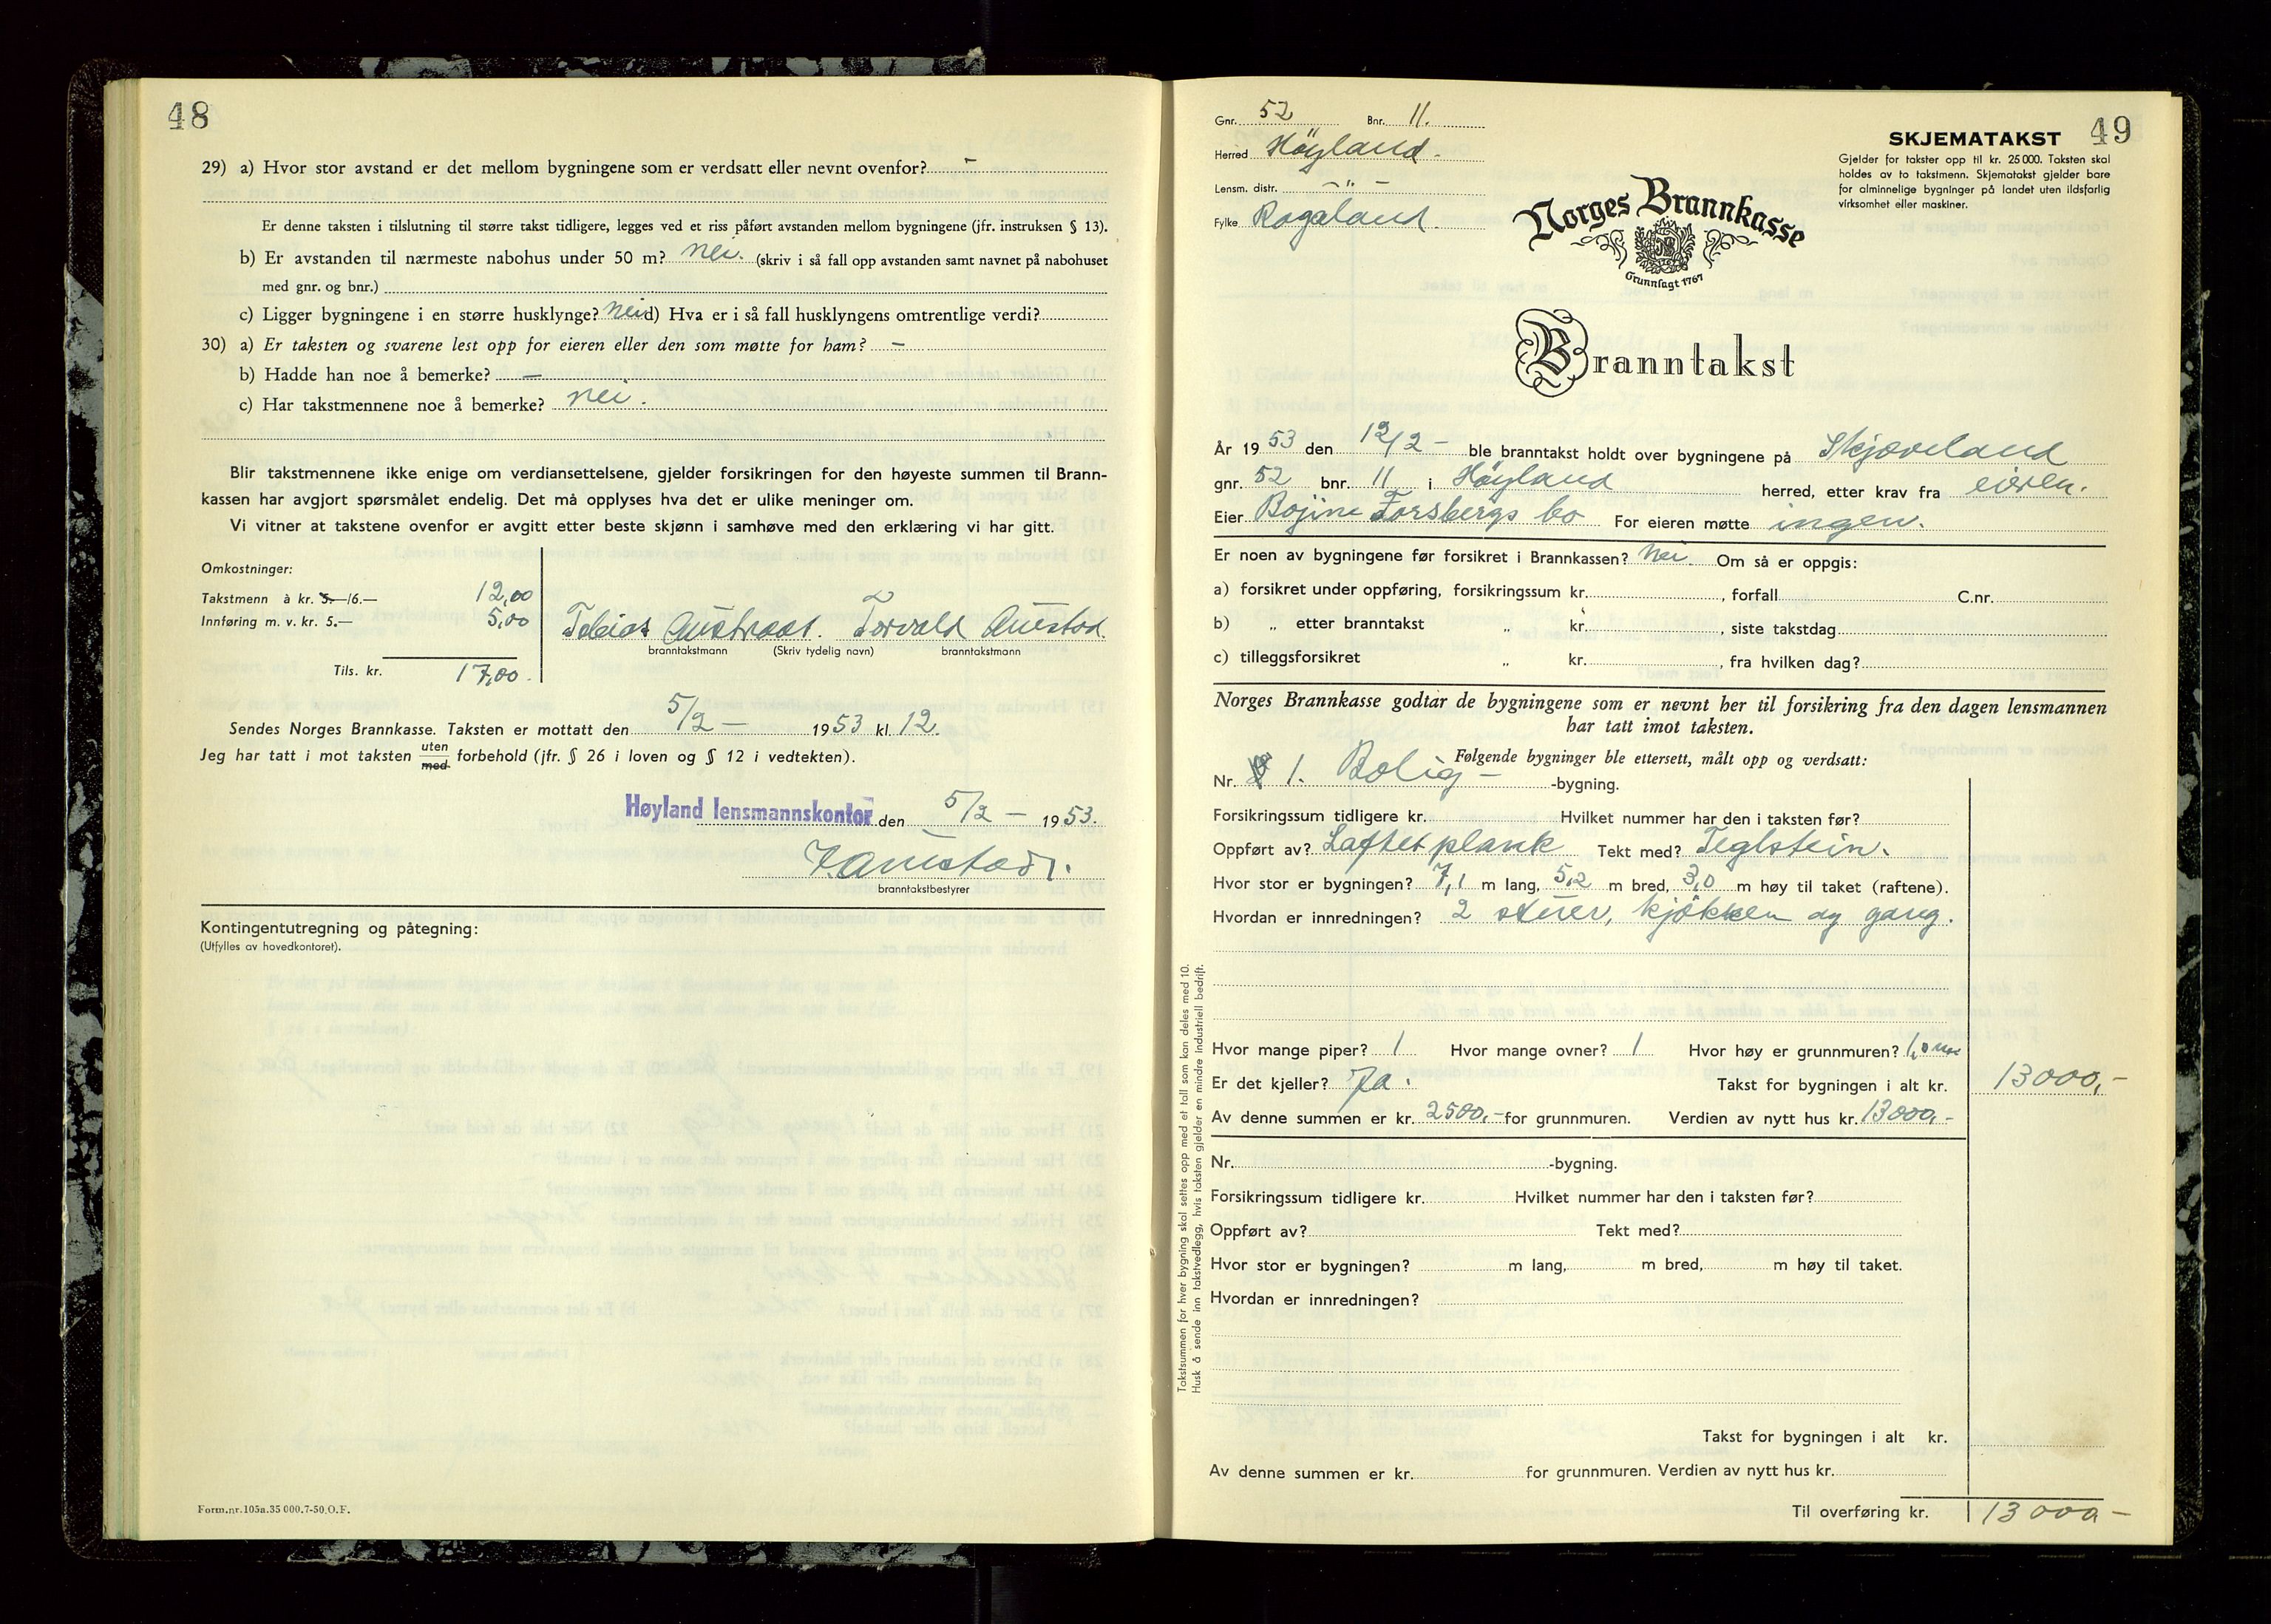 48
29) a) Hvor stor avstand er det mellom bygningene som er verdsatt eller nevnt ovenfor? -
Er denne taksten i tilslutning til større takst tidligere, legges ved et riss påført avstanden mellom bygningene (jfr. instruksen § 13).
b) Er avstanden til nærmeste nabohus under 50 m? nei. (skriv i så fall opp avstanden samt navnet på nabohuset
med gnr. og bnr.)
c) Ligger bygningene i en større husklynge? nei d) Hva er i så fall husklyngens omtrentlige verdi?
30) a) Er taksten og svarene lest opp for eieren eller den som møtte for ham? -
b) Hadde han noe å bemerke? -
c) Har takstmennene noe å bemerke? nei.
Blir takstmennene ikke enige om verdiansettelsene, gjelder forsikringen for den høyeste summen til Brann-
kassen har avgjort spørsmålet endelig. Det må opplyses hva det er ulike meninger om.
Vi vitner at takstene ovenfor er avgitt etter beste skjønn i samhøve med den erklæring vi har gitt.
Omkostninger:
Takstmenn à kr. 5.—/6.— 12,00
Innføring m. v. kr. 5.— 5,00
Tobias Austraat. Torvald Auestad.
branntakstmann (Skriv tydelig navn) branntakstmann
Tils. kr. 17,00.
Sendes Norges Brannkasse. Taksten er mottatt den 5/2 - 1953 kl. 12.
Jeg har tatt i mot taksten uten med forbehold (jfr. § 26 i loven og § 12 i vedtekten).
Høyland lensmannskontor den 5/2 - 1953.
branntakstbestyrer
Kontingentutregning og påtegning:
(Utfylles av hovedkontoret).
Form.nr.105a.35 000.7-50.O.F.
Gnr. 52 Bnr. 11.
Herred Höyland.
Lensm. distr. -"-
Fylke Rogaland.
SKJEMATAKST 49
Gjelder for takster opp til kr. 25 000. Taksten skal
holdes av to takstmenn. Skjematakst gjelder bare
for alminnelige bygninger på landet uten ildsfarlig
virksomhet eller maskiner.
Norges Brannkasse
Grunnlagt 1767
Branntakst
År 1953 den 12/2 - ble branntakst holdt over bygningene på Skjæveland
gnr. 52 bnr. 11 i Höyland herred, etter krav fra eieren.
Eier Bojine Forsbergs bo For eieren møtte ingen.
Er noen av bygningene før forsikret i Brannkassen? nei. Om så er oppgis:
a) forsikret under oppføring, forsikringssum kr. , forfall C.nr.
b) „ etter branntakst „ kr. , siste takstdag
c) tilleggsforsikret „ kr. , fra hvilken dag?
Norges Brannkasse godtar de bygningene som er nevnt her til forsikring fra den dagen lensmannen
har tatt imot taksten.
Følgende bygninger ble ettersett, målt opp og verdsatt:
Nr. 1. Bolig- -bygning.
Forsikringssum tidligere kr. Hvilket nummer har den i taksten før?
Oppført av? Laftet plank Tekt med? Teglstein.
Hvor stor er bygningen? 7,1 m lang, 5,2 m bred, 3,0 m høy til taket (raftene).
Hvordan er innredningen? 2 stuer, kjökken og gang.
Hvor mange piper? 1 Hvor mange ovner? 1 Hvor høy er grunnmuren? 1,0 m
Er det kjeller? Ja. Takst for bygningen i alt kr. 13000,-
Av denne summen er kr. 2500,- for grunnmuren. Verdien av nytt hus kr. 13000,-
Nr. -bygning.
Forsikringssum tidligere kr. Hvilket nummer har den i taksten før?
Oppført av? Tekt med?
Hvor stor er bygningen? m lang, m bred, m høy til taket.
Hvordan er innredningen?
Takst for bygningen i alt kr.
Av denne summen er kr. for grunnmuren. Verdien av nytt hus kr.
Til overføring kr. 13000-
Takstsummen for hver bygning skal settes opp med et tall som kan deles med 10.
Husk å sende inn takstvedlegg, hvis taksten gjelder en mindre industriell bedrift.